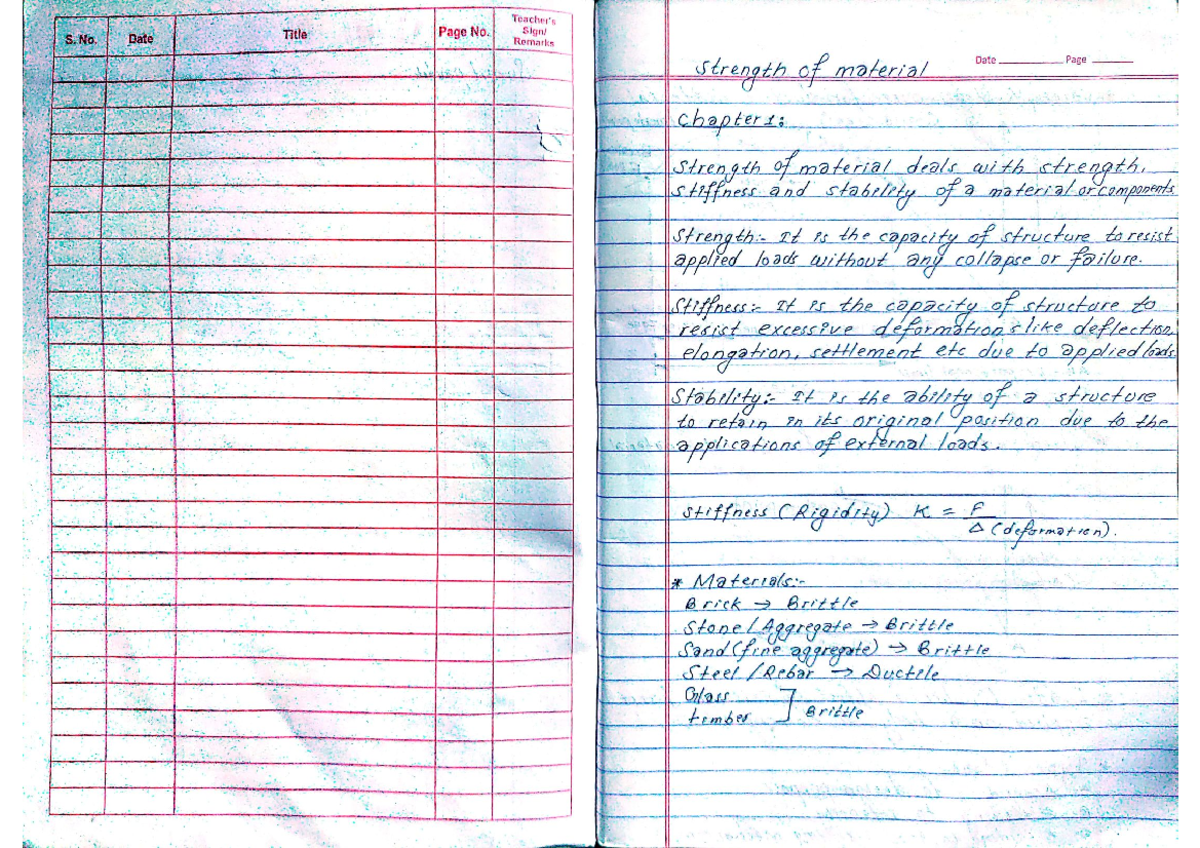 S. No. Date Title Page No. Teacher's Sign/ Remarks
Date Page
Strength of material
Chapter 1:
Strength of material deals with strength,
stiffness and stability of a material or components
Strength:- It is the capacity of structure to resist
applied loads without any collapse or failure.
Stiffness:- It is the capacity of structure to
resist excessive deformations like deflection,
elongation, settlement etc due to applied loads
Stability:- It is the ability of a structure
to retain in its original position due to the
applications of external loads.
Stiffness (Rigidity) K = F
Δ (deformation).
* Materials:-
Brick → Brittle
Stone / Aggregate → Brittle
Sand (fine aggregate) → Brittle
Steel / Rebar → Ductile
Glass
timber ] Brittle